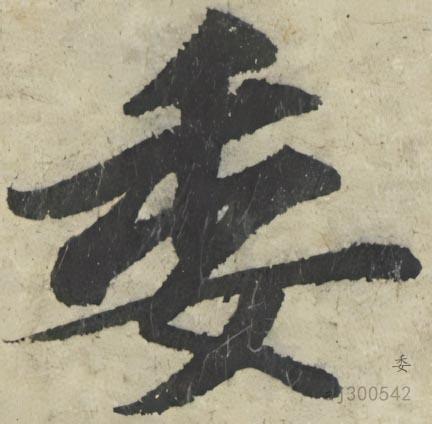 委
委
aj300542